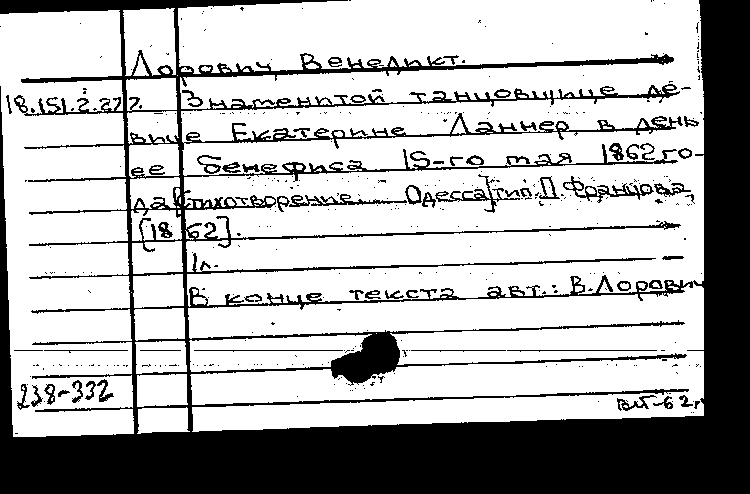 Лорович, Венедикт.
18.151.2.272 Знаменитой танцовщице де-
вице Екатерине Ланнер, в день
ее бенефиса 15-го мая 1862 го-
да [Стихотворение. Одесса] тип. П. Францова,
[1862].
1л.
В конце текста авт.: В. Лорович
238-332